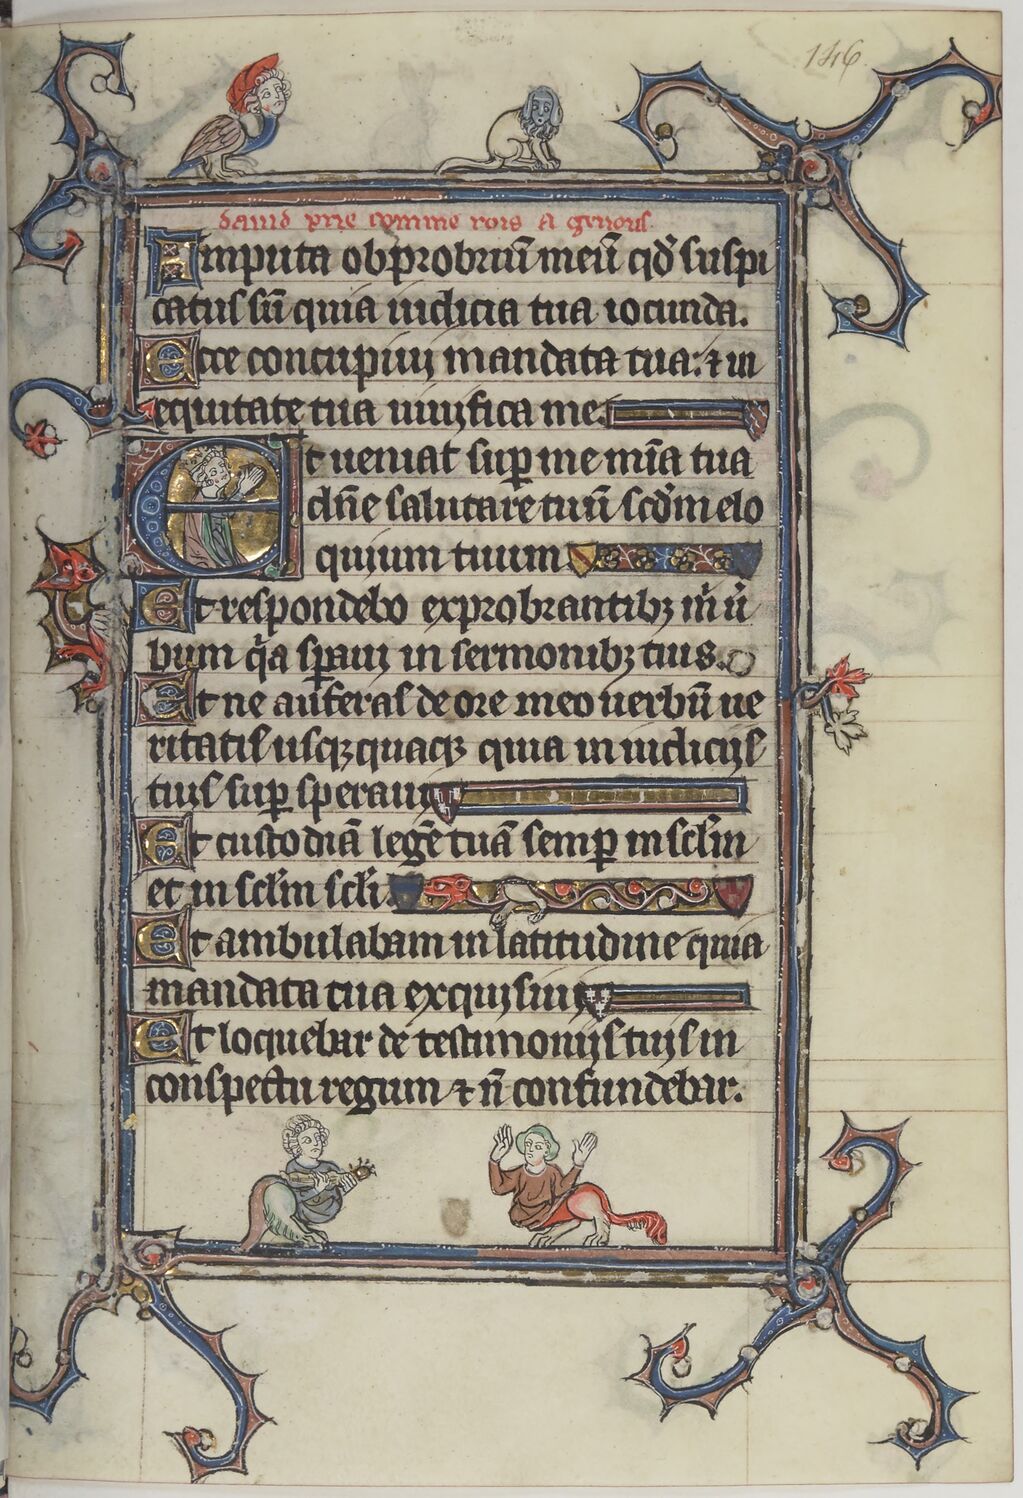 146
dauid prie comme rois a genous
Amputa obprobriū meū qđ suspi
catus sū quia iudicia tua iocunda.
Ecce concupiui mandata tua: ⁊ in
equitate tua uiuifica me.
Et ueniat sup me mīa tua
dn̄e salutare tuū scdm elo
quium tuum
Et respondebo exprobrantibȝ m̄ ū
bum qᵃ spaui in sermonibȝ tuis.
Et ne auferas de ore meo uerbū ue
ritatis usqȝquaqȝ quia in iudicijs
tuis sup speraui
Et custodiā legē tuā semp in sclm
et in sclm scli.
Et ambulabam in latitudine quia
mandata tua exquisiui
Et loquebar de testimonijs tuis in
conspectu regum ⁊ n̄ confundebar.